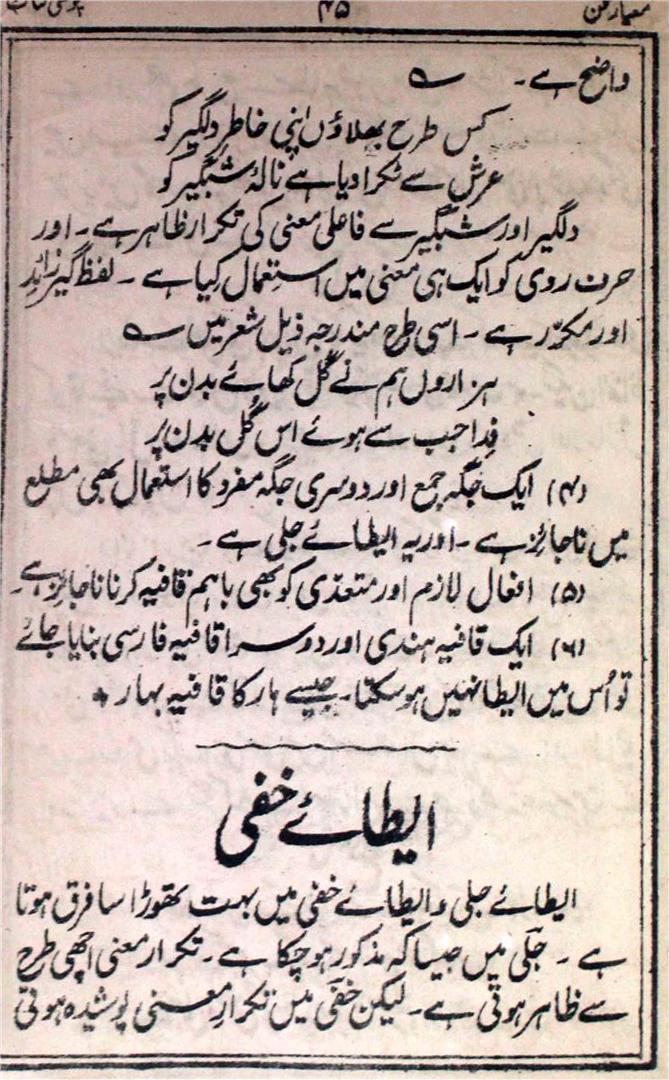 معمار فن ۴۵
واضح ہے۔ ؎
کس طرح بھلاؤں اپنی خاطرِ دلگیر کو
عرش سے ٹکرا دیا ہے نالۂ شبگیر کو
دلگیر اور شبگیر سے فاعلی معنی کی تکرار ظاہر ہے۔ اور
حرف روی کو ایک ہی معنی میں استعمال کیا ہے۔ لفظ گیر زائد
اور مکرّر ہے۔ اسی طرح مندرجہ ذیل شعر میں ؎
ہزاروں ہم نے گُل کھائے بدن پر
فِدا جب سے ہوئے اس گُل بدن پر
(۴) ایک جگہ جمع اور دوسری جگہ مفرد کا استعمال بھی مطلع
میں ناجائز ہے۔ اور یہ ایطائے جلی ہے۔
(۵) افعال لازم اور متعدّی کو بھی باہم قافیہ کرنا ناجائز ہے۔
(۶) ایک قافیہ ہندی اور دوسرا قافیہ فارسی بنایا جائے
تو اُس میں ایطا نہیں ہو سکتا۔ جیسے ہار کا قافیہ بہار ٭
ایطائے خفی
ایطائے جلی و ایطائے خفی میں بہت تھوڑا سا فرق ہوتا
ہے۔ جلّی میں جیسا کہ مذکور ہو چکا ہے۔ تکرار معنی اچھی طرح
سے ظاہر ہوتی ہے۔ لیکن خفّی میں تکرارِ معنی پوشیدہ ہوتی